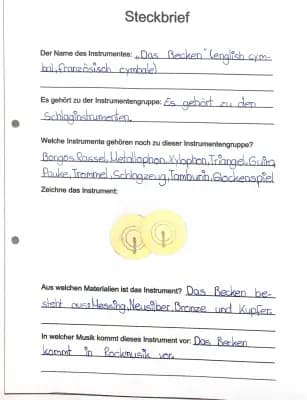 Steckbrief
Der Name des Instrumentes: „Das Becken" (englich cym-
bal, französisch cymbale)
Es gehört zu der Instrumentengruppe: Es gehört zu den
Schlaginstrumenten.
Welche Instrumente gehören noch zu dieser Instrumentengruppe?
Bongos, Rassel, Metallophon, Xylophon, Triangel, Guiro,
Pauke, Trommel, Schlagzeug, Tamburin, Glockenspiel
Zeichne das Instrument:
Aus welchen Materialien ist das Instrument? Das Becken be-
steht aus: Messing, Neusilber, Bronze und Kupfer.
In welcher Musik kommt dieses Instrument vor: Das Becken
kommt in Rockmusik vor.